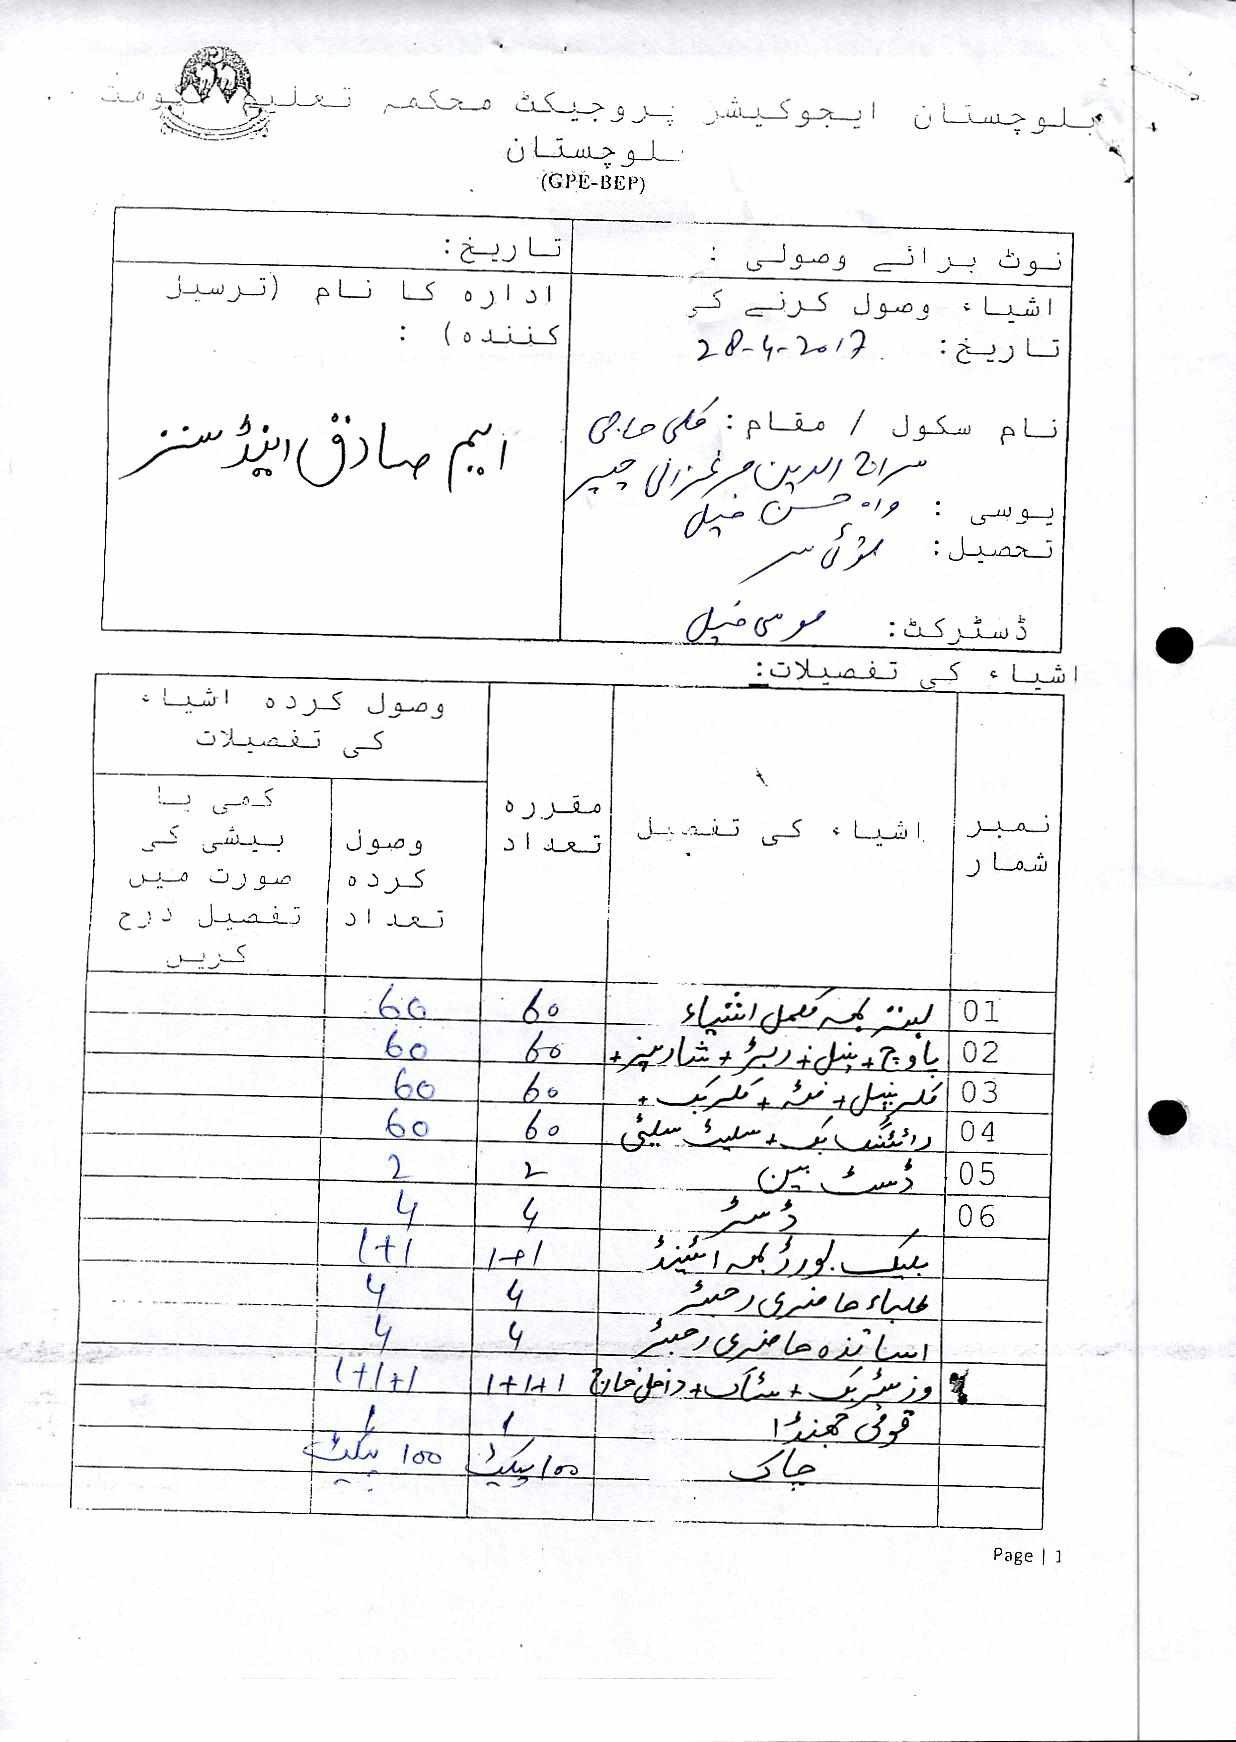 بلوچستان ایجوکیشر پروجیکٹ محکمہ تعلیم ومت
بلوچستان
(GPE-BEP)
نوٹ برائے وصولی :
تاریخ:
اشیاء وصول کرنے کی
تاریخ: 28-4-2017
نام سکول / مقام: کلی حاجی
سراج الدین مرغزانی چپر
یوسی : واہ حسن خیل
تحصیل:
ڈسٹرکٹ: موسی خیل
ادارہ کا نام (ترسیل
کنندہ) :
ایم صادق اینڈ سنز
اشیاء کی تفصیلات:
نمبر شمار
اشیاء کی تفصیل
مقررہ تعداد
وصول کردہ اشیاء کی تفصیلات
وصول کردہ تعداد
کمی یا بیشی کی صورت میں تفصیل درج کریں
01 بستہ بمعہ مکمل اشیاء 60 60
02 پاوچ + پنسل + ربڑ + شارپنر + 60 60
03 کلر پنسل + فٹہ + کلر بک + 60 60
04 رائٹنگ بک + سلیٹ سلیٹی 60 60
05 ڈسٹ بین 2 2
06 ڈسٹر 4 4
بلیک بورڈ بمعہ اسٹینڈ 1+1 1+1
طلباء حاضری رجسٹر 4 4
اساتذہ حاضری رجسٹر 4 4
وزیٹر بک + سٹاک + داخل خارج 1+1+1 1+1+1
قومی جھنڈا 1 1
چاک 100 پیکٹ 100 پیکٹ
Page | 1